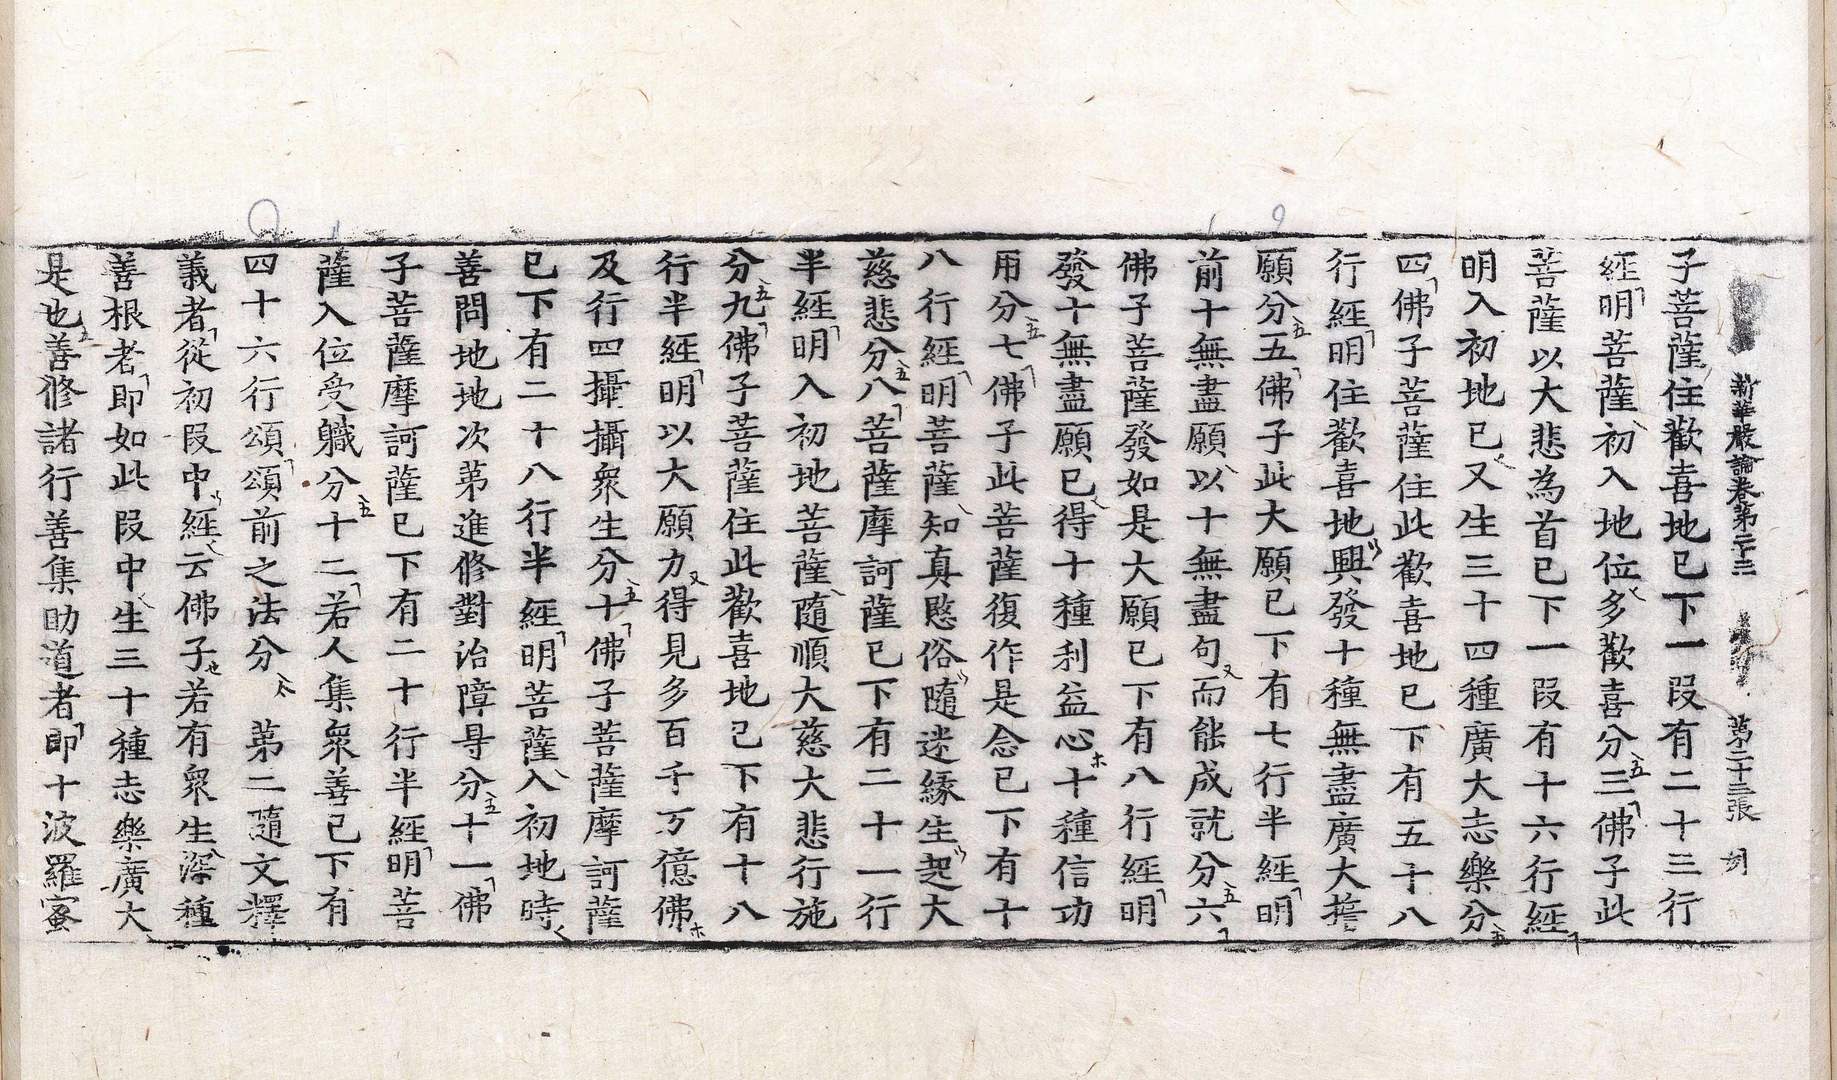 新華嚴論卷第二十三 第二十三張 刿
子菩薩住歡喜地已下一段有二十三行
經明菩薩初入地位多歡喜分三佛子此
菩薩以大悲為首已下一段有十六行經
明入初地已又生三十四種廣大志樂分
四佛子菩薩住此歡喜地已下有五十八
行經明住歡喜地興發十種無盡廣大擔
願分五佛子此大願已下有七行半經明
前十無盡願以十無盡句而能成就分六
佛子菩薩發如是大願已下有八行經明
發十無盡願已得十種利益心十種信功
用分七佛子此菩薩復作是念已下有十
八行經明菩薩知真愍俗隨迷緣生起大
慈悲分八菩薩摩訶薩已下有二十一行
半經明入初地菩薩隨順大慈大悲行施
分九佛子菩薩住此歡喜地已下有十八
行半經明以大願力得見多百千万億佛
及行四攝攝衆生分十佛子菩薩摩訶薩
已下有二十八行半經明菩薩入初地時
善問地地次第進修對治障㝵分十一佛
子菩薩摩訶薩已下有二十行半經明菩
薩入位受軄分十二若人集衆善已下有
四十六行頌頌前之法分 第二隨文釋
義者從初段中經云佛子若有衆生深種
善根者即如此段中生三十種志樂廣大
是也善修諸行善集助道者即十波羅蜜